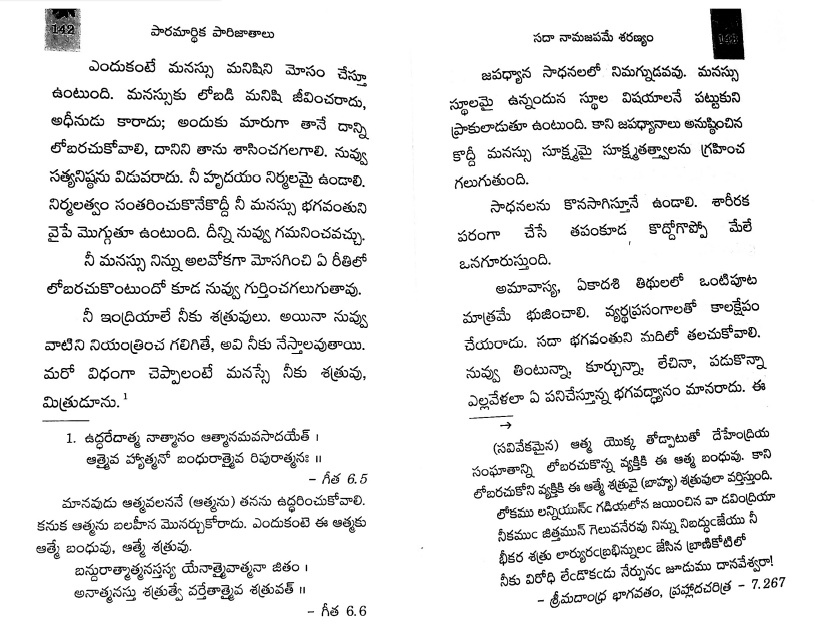 142
పారమార్థిక పారిజాతాలు
ఎందుకంటే మనస్సు మనిషిని మోసం చేస్తూ
ఉంటుంది. మనస్సుకు లోబడి మనిషి జీవించరాదు,
అధీనుడు కారాదు; అందుకు మారుగా తానే దాన్ని
లోబరచుకోవాలి, దానిని తాను శాసించగలగాలి. నువ్వు
సత్యనిష్ఠను విడువరాదు. నీ హృదయం నిర్మలమై ఉండాలి.
నిర్మలత్వం సంతరించుకొనేకొద్దీ నీ మనస్సు భగవంతుని
వైపే మొగ్గుతూ ఉంటుంది. దీన్ని నువ్వు గమనించవచ్చు.
నీ మనస్సు నిన్ను అలవోకగా మోసగించి ఏ రీతిలో
లోబరచుకొంటుందో కూడ నువ్వు గుర్తించగలుగుతావు.
నీ ఇంద్రియాలే నీకు శత్రువులు. అయినా నువ్వు
వాటిని నియంత్రించ గలిగితే, అవి నీకు నేస్తాలవుతాయి.
మరో విధంగా చెప్పాలంటే మనస్సే నీకు శత్రువు,
మిత్రుడూను.¹
1. ఉద్ధరేదాత్మ నాత్మానం ఆత్మానమవసాదయేత్ ।
ఆత్మైవ హ్యాత్మనో బంధురాత్మైవ రిపురాత్మనః ॥
– గీత 6.5
మానవుడు ఆత్మవలననే (ఆత్మను) తనను ఉద్ధరించుకోవాలి.
కనుక ఆత్మను బలహీన మొనర్చుకోరాదు. ఎందుకంటె ఈ ఆత్మకు
ఆత్మే బంధువు, ఆత్మే శత్రువు.
బన్దురాత్మాత్మనస్తస్య యేనాత్మైవాత్మనా జితం ।
అనాత్మనస్తు శత్రుత్వే వర్తేతాత్మైవ శత్రువత్ ॥
– గీత 6.6
సదా నామజపమే శరణ్యం
జపధ్యాన సాధనలలో నిమగ్నుడవవు. మనస్సు
స్థూలమై ఉన్నందున స్థూల విషయాలనే పట్టుకుని
ప్రాకులాడుతూ ఉంటుంది. కాని జపధ్యానాలు అనుష్ఠించిన
కొద్దీ మనస్సు సూక్ష్మమై సూక్ష్మతత్త్వాలను గ్రహించ
గలుగుతుంది.
సాధనలను కొనసాగిస్తూనే ఉండాలి. శారీరక
పరంగా చేసే తపంకూడ కొద్దోగొప్పో మేలే
ఒనగూరుస్తుంది.
అమావాస్య, ఏకాదశి తిథులలో ఒంటిపూట
మాత్రమే భుజించాలి. వ్యర్థప్రసంగాలతో కాలక్షేపం
చేయరాదు. సదా భగవంతుని మదిలో తలచుకోవాలి.
నువ్వు తింటున్నా, కూర్చున్నా, లేచినా, పడుకొన్నా
ఎల్లవేళలా ఏ పనిచేస్తూన్న భగవద్ధ్యానం మానరాదు. ఈ
→
(సవివేకమైన) ఆత్మ యొక్క తోడ్పాటుతో దేహేంద్రియ
సంఘాతాన్ని లోబరచుకొన్న వ్యక్తికి ఈ ఆత్మ బంధువు. కాని
లోబరచుకోని వ్యక్తికి ఈ ఆత్మే శత్రువై (బాహ్య) శత్రువులా వర్తిస్తుంది.
లోకము లన్నియున్ఁ గడియలోన జయించిన వా డవింద్రియా
నీకముఁ జిత్తమున్ గెలువనేరవు నిన్ను నిబద్ధుఁజేయు నీ
భీకర శత్రు లార్యురఁబ్రభిన్నులఁ జేసిన బ్రాణికోటిలో
నీకు విరోధి లేఁడొకఁడు నేర్పునఁ జూడుము దానవేశ్వరా!
– శ్రీమదాంధ్ర భాగవతం, ప్రహ్లాదచరిత్ర – 7.267